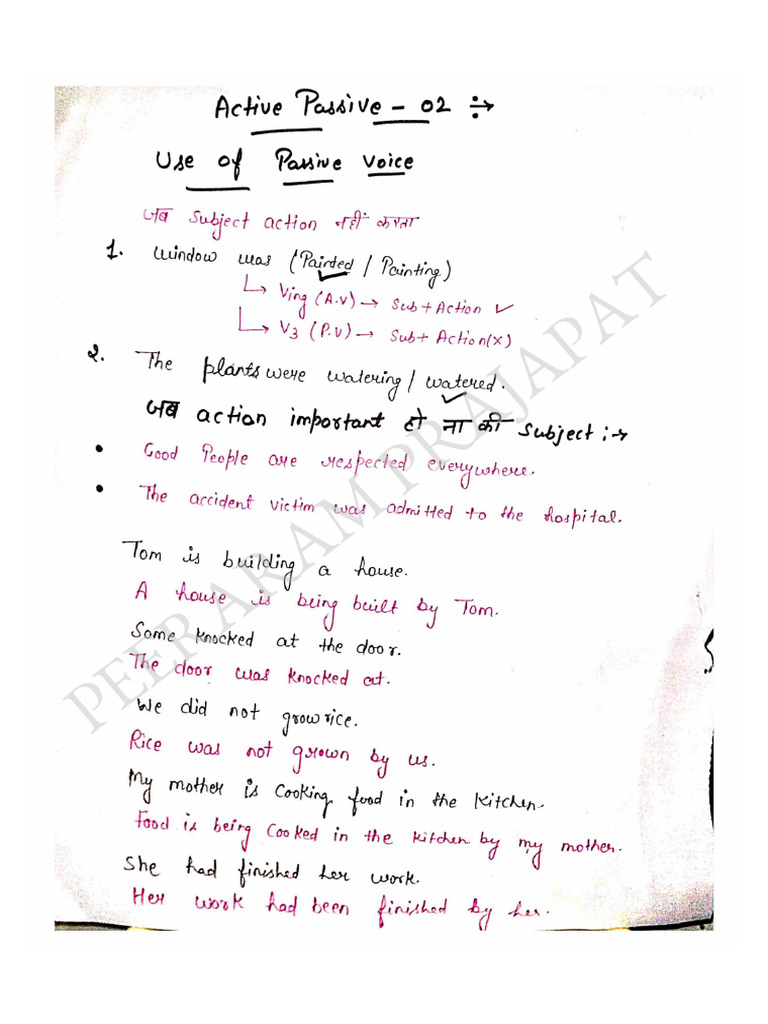 Active Passive - 02 ÷→
Use of Passive Voice
जब subject action नहीं करता
1. Window was (Painted / Painting)
↳ Ving (A.V) → Sub + Action ✓
↳ V3 (P.V) → Sub + Action (X)
2. The plants were watering / watered.
जब action important हो ना की subject :→
• Good People are respected everywhere.
• The accident victim was admitted to the hospital.
Tom is building a house.
A house is being built by Tom.
Some knocked at the door.
The door was knocked at.
We did not grow rice.
Rice was not grown by us.
My mother is cooking food in the kitchen.
Food is being cooked in the kitchen by my mother.
She had finished her work.
Her work had been finished by her.
PEERARAM PRAJAPAT